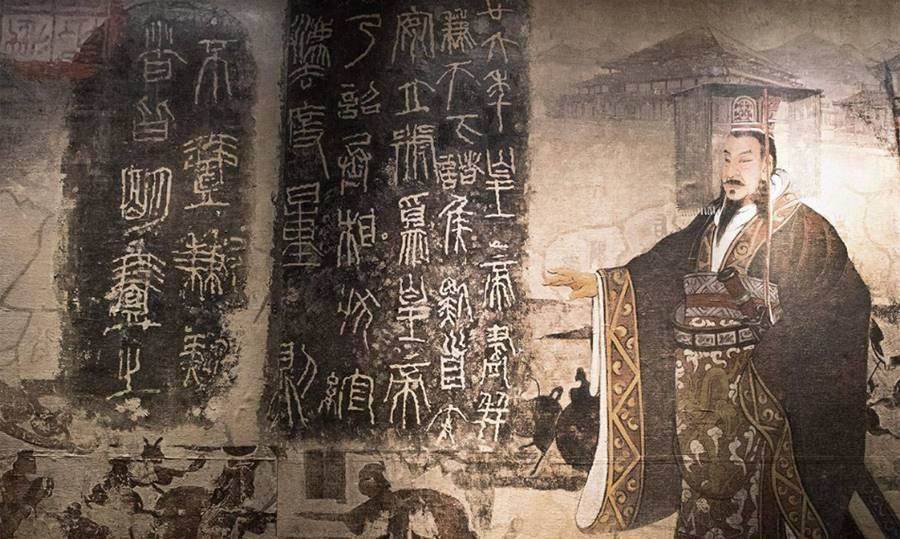 廿六年皇帝盡并
兼天下諸侯黔首大
安立號為皇帝
乃詔丞相狀綰
法度量則
不壹歉疑
者皆明壹之